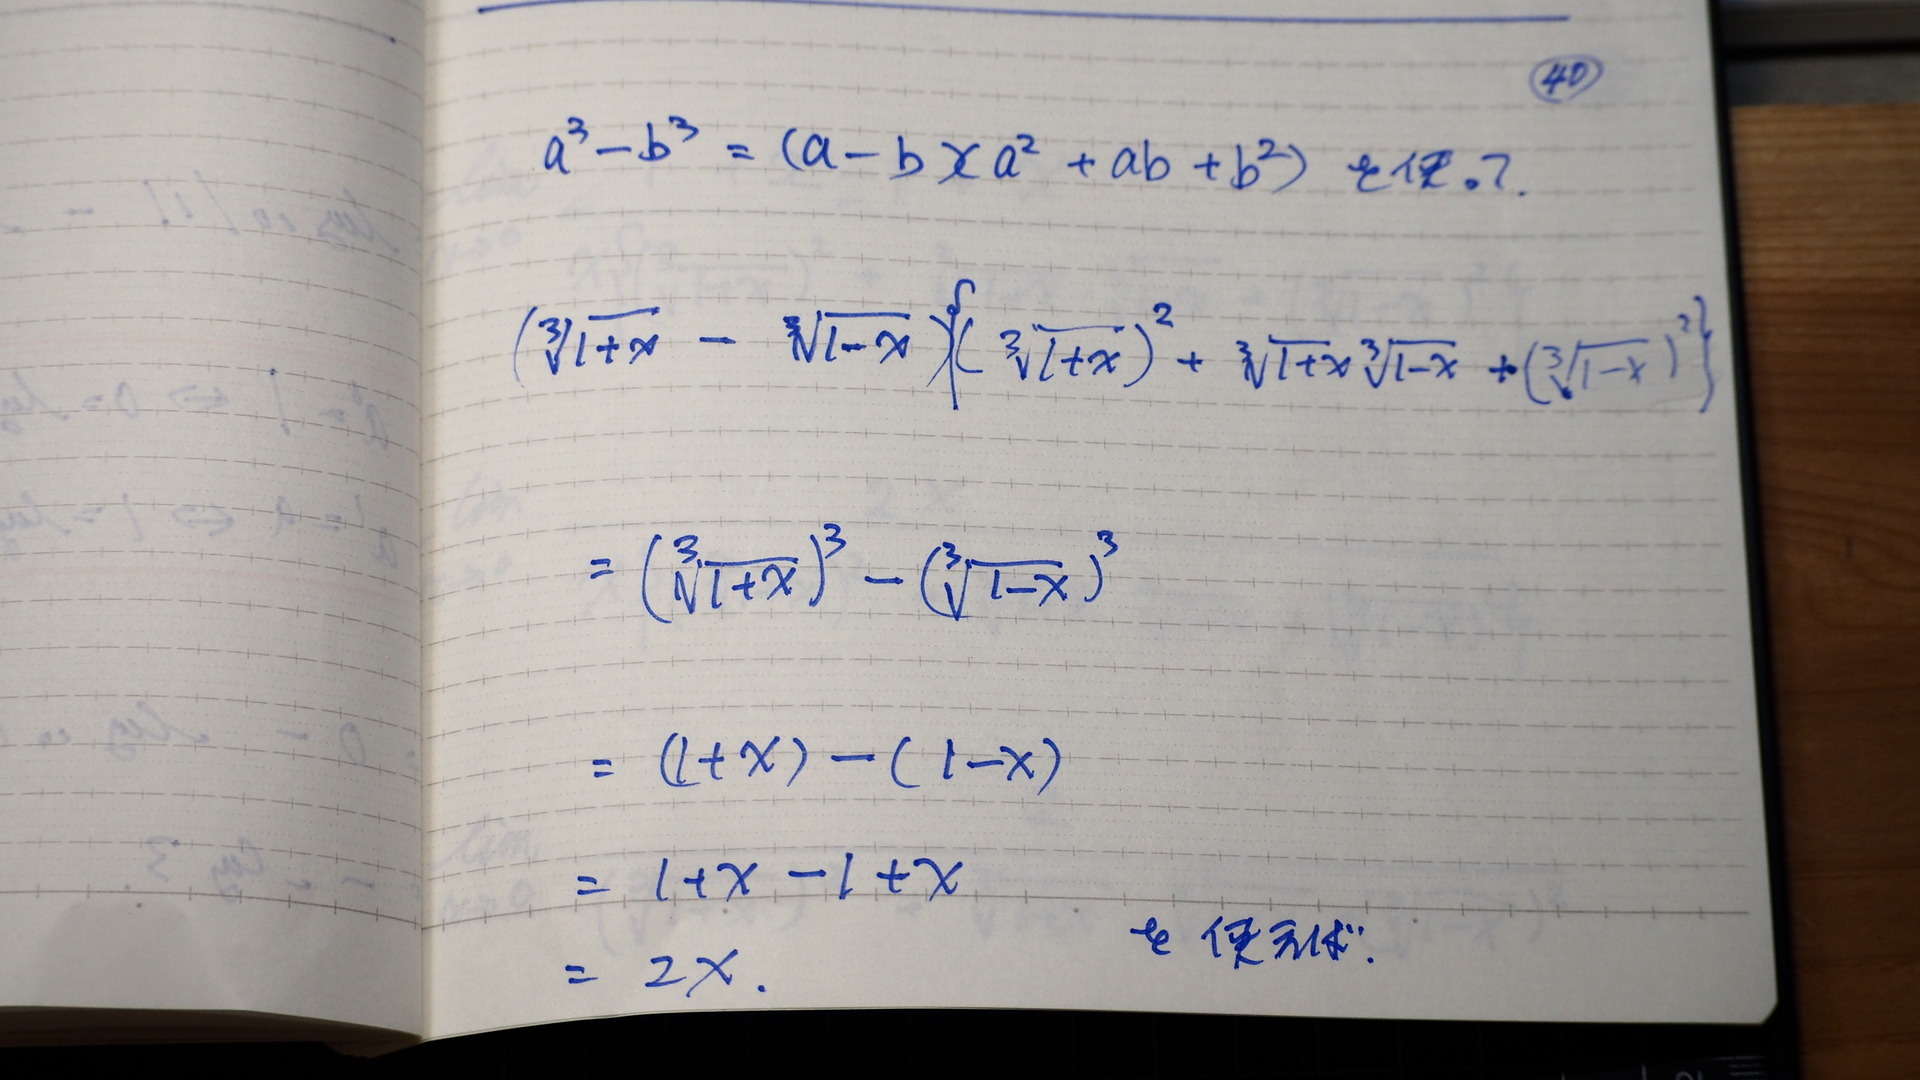 ㊵
a³-b³ = (a-b)(a²+ab+b²) を使って.
(∛(1+x) - ∛(1-x)){(∛(1+x))² + ∛(1+x) ∛(1-x) + (∛(1-x))²}
= (∛(1+x))³ - (∛(1-x))³
= (1+x)-(1-x)
= 1+x-1+x
を使えば.
= 2x.